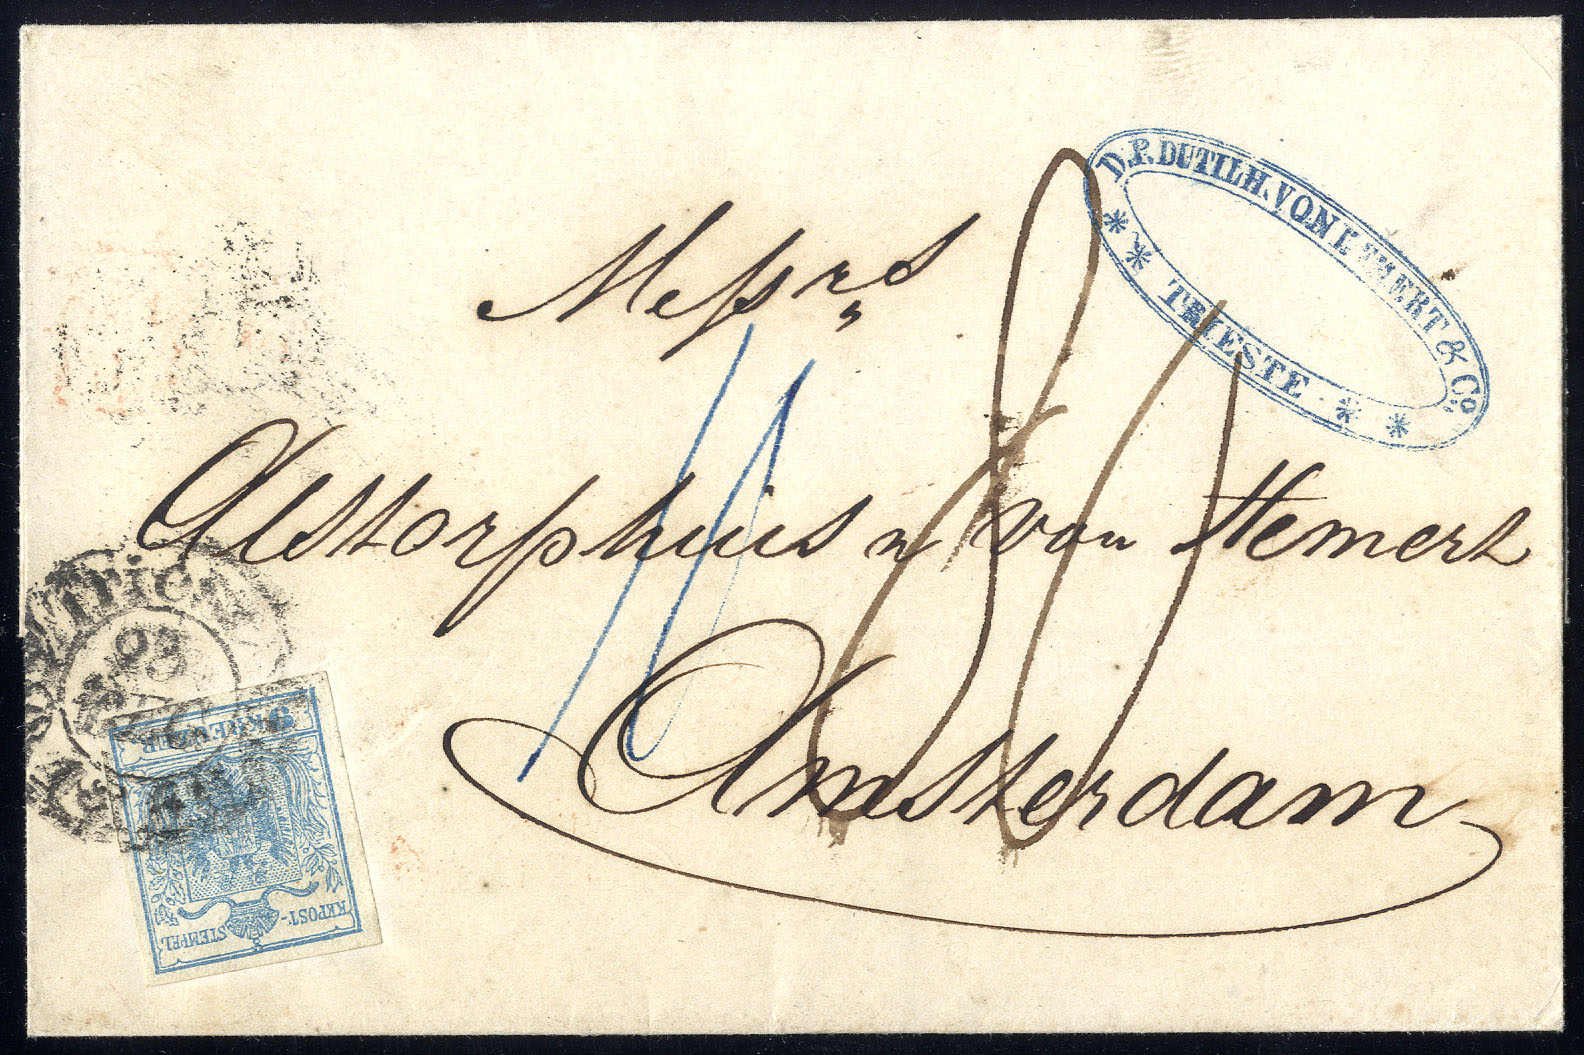 D. P. DUTILH. VON HEMERT & Co.
* * TRIESTE * *
Messrs
Alstorphius & van Hemert
Amsterdam
11
80
9 KREUZER
KK POST-STEMPEL